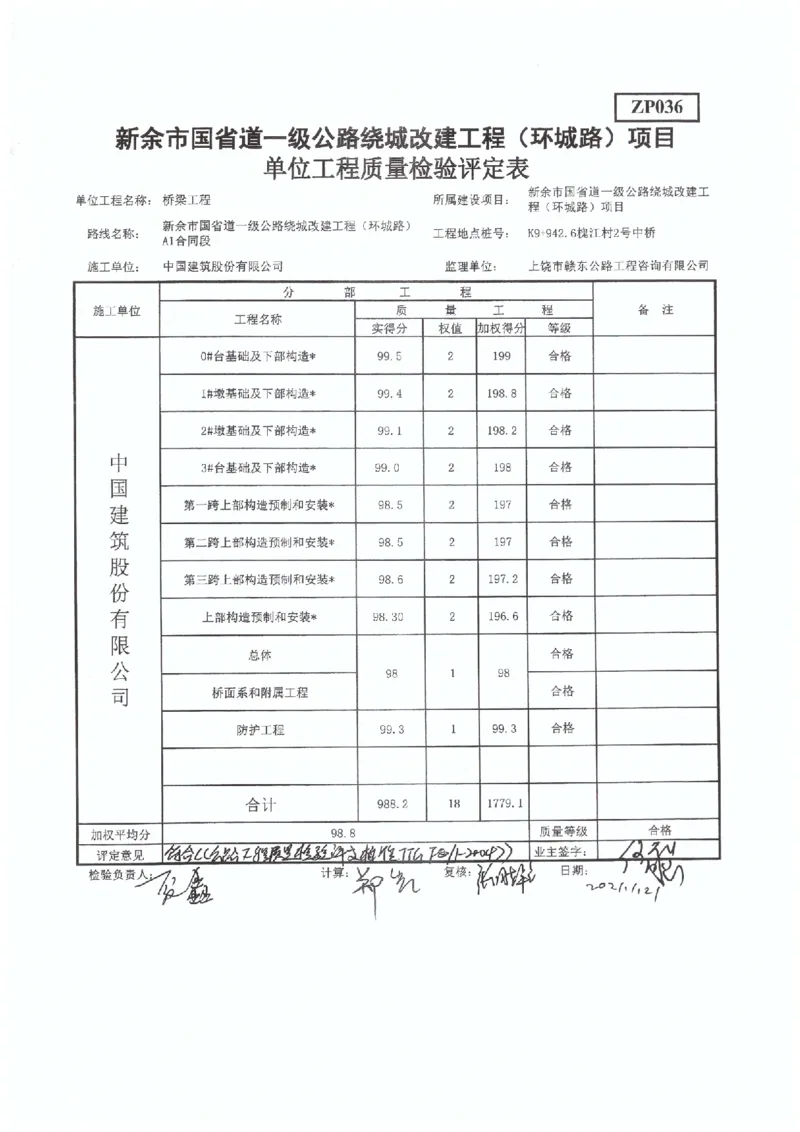 ZP036
新余市国省道一级公路绕城改建工程（环城路）项目
单位工程质量检验评定表
单位工程名称： 桥梁工程 所属建设项目： 新余市国省道一级公路绕城改建工
程（环城路）项目
路线名称： 新余市国省道一级公路绕城改建工程（环城路）
A1合同段 工程地点桩号： K9+942.6槐江村2号中桥
施工单位： 中国建筑股份有限公司 监理单位： 上饶市赣东公路工程咨询有限公司
施工单位 分 部 工 程 备 注
工程名称 质 量 工 程
实得分 权值 加权得分 等级
中国建筑股份有限公司
0#台基础及下部构造* 99.5 2 199 合格
1#墩基础及下部构造* 99.4 2 198.8 合格
2#墩基础及下部构造* 99.1 2 198.2 合格
3#台基础及下部构造* 99.0 2 198 合格
第一跨上部构造预制和安装* 98.5 2 197 合格
第二跨上部构造预制和安装* 98.5 2 197 合格
第三跨上部构造预制和安装* 98.6 2 197.2 合格
上部构造预制和安装* 98.30 2 196.6 合格
总体 98 1 98 合格
桥面系和附属工程 合格
防护工程 99.3 1 99.3 合格
合计 988.2 18 1779.1
加权平均分 98.8 质量等级 合格
评定意见 符合《公路工程质量检验评定标准JTG F80/1-2004》 业主签字：
检验负责人： 计算： 复核： 日期：
2021.1.21